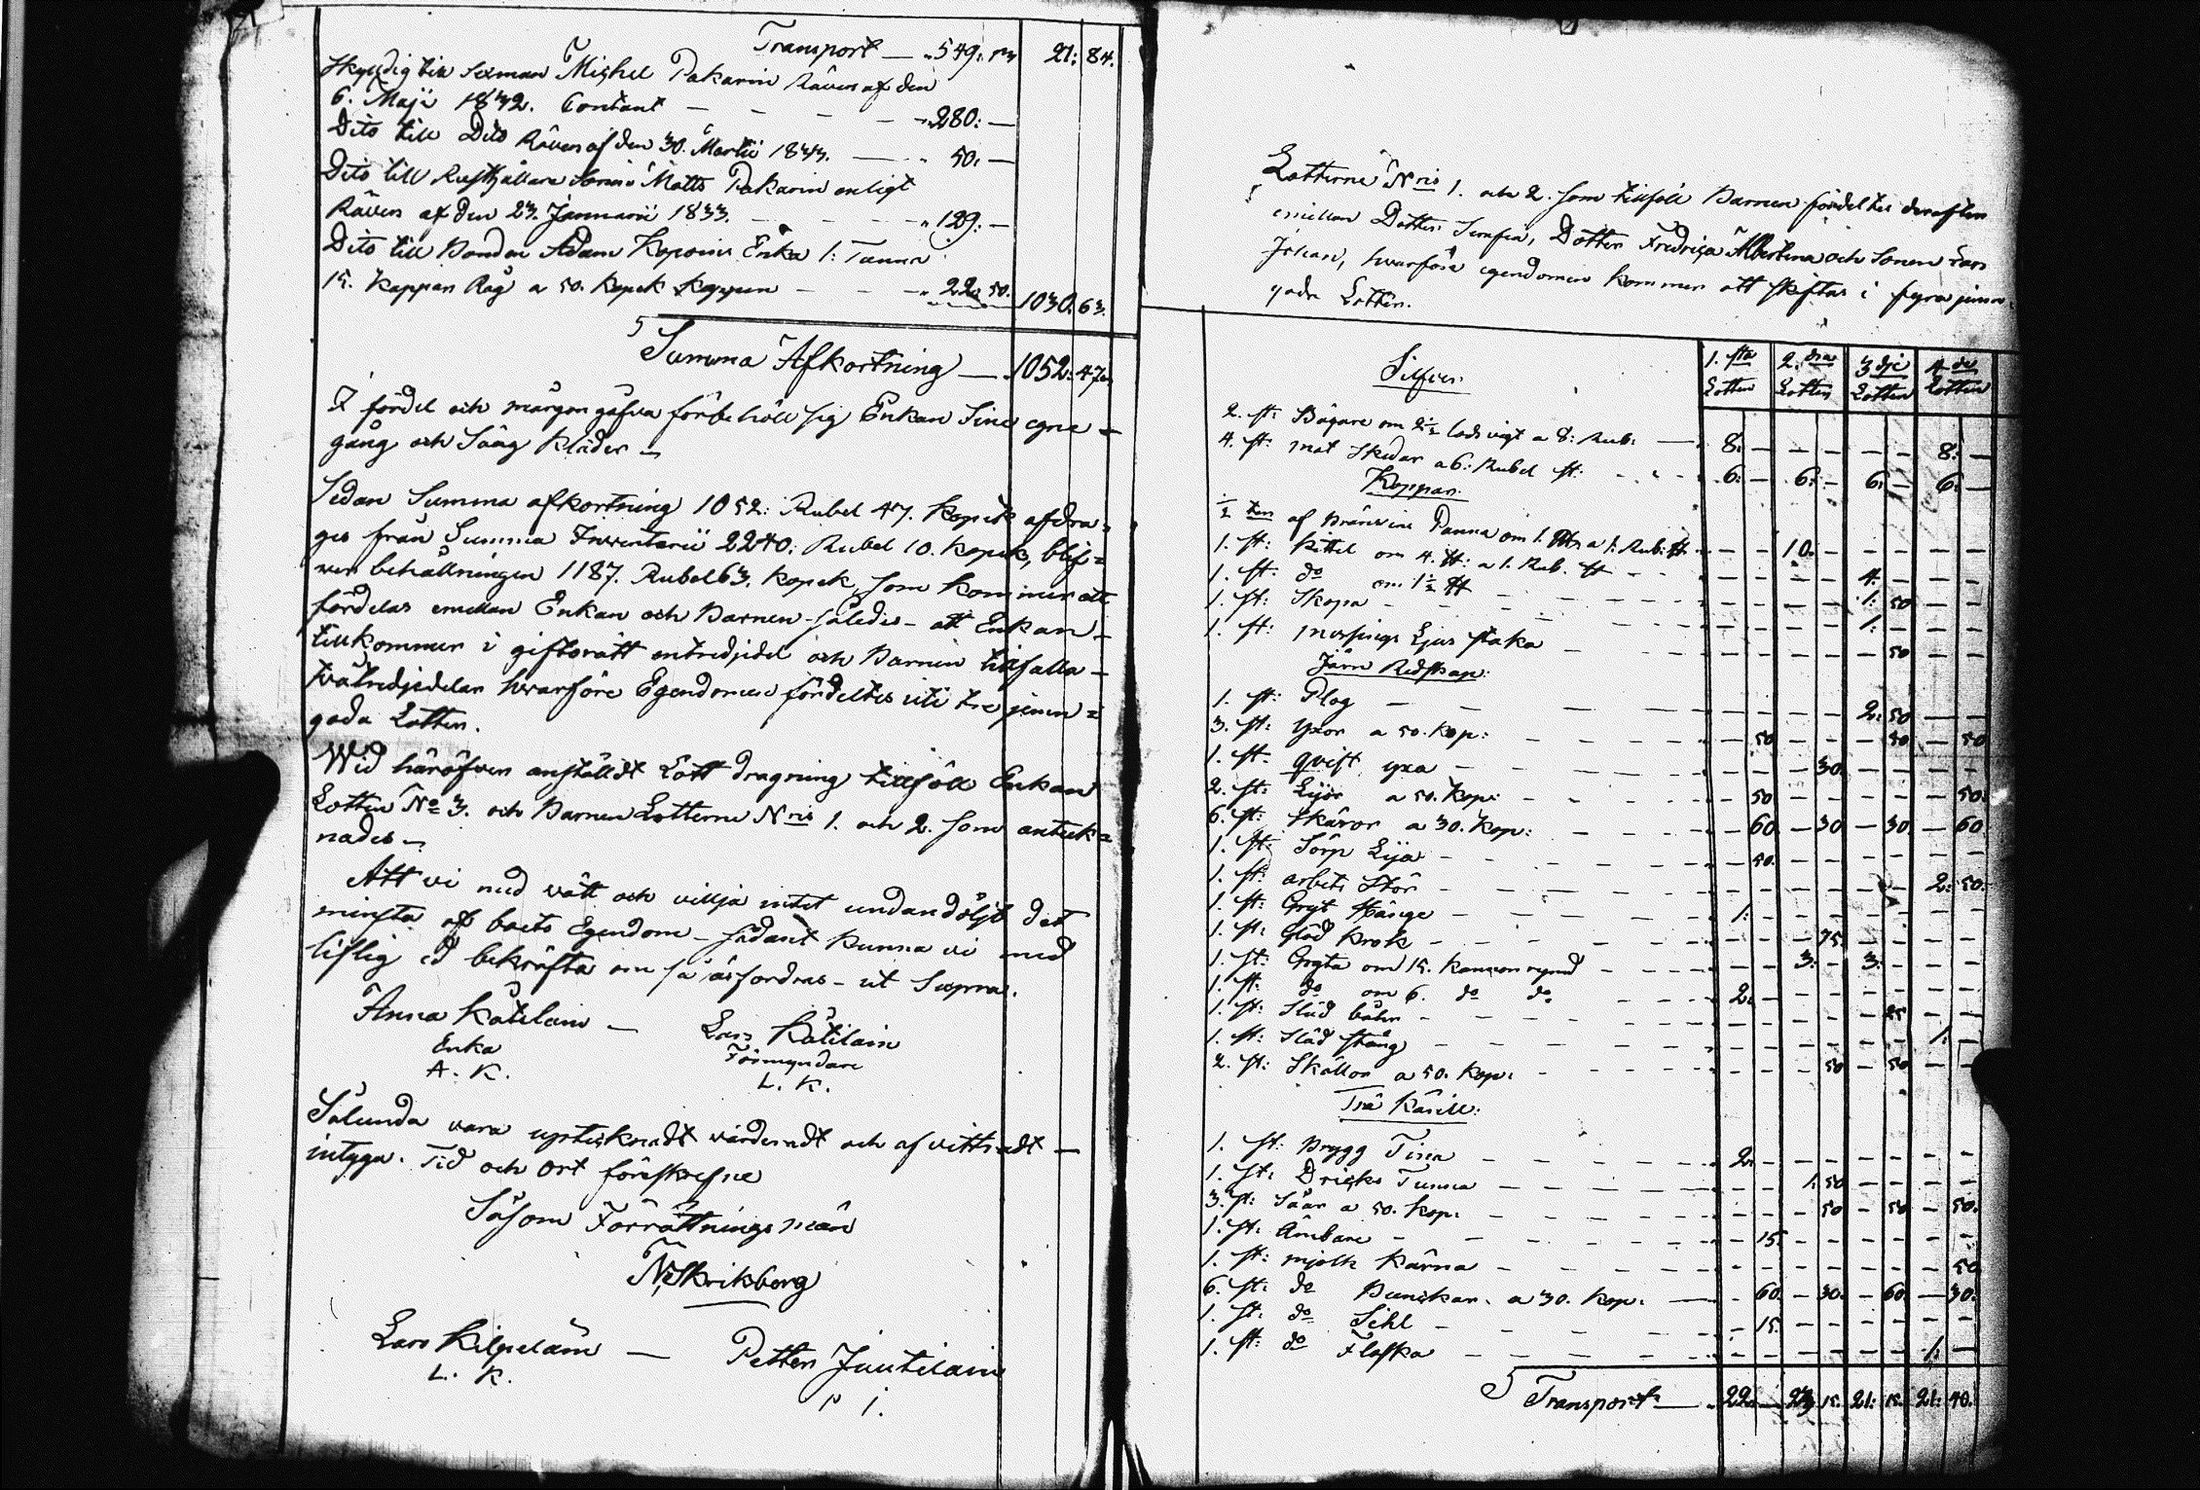 Transport — 549: 13 21: 84.
Skyldig till Sexman Michel Pakarin Räven af den
6. Maji 1832. Contant — — — — 280: —
Dito till Dito Räven af den 30. Martii 1833. — 50: —
Dito till Matts Pakarin enligt
Räven af den 23. Januarii 1833. — — — 129: —
Dito till Bonden Adam Koponis Enka 1: Tunna
15. Kappar Råg a 50. Kopek kappen — — 22: 50. 1030. 63.
Summa Afkortning — 1052: 47.
I fördel och morgongåfva förbehöll sig Enkan Sine egne
gång och Säng Kläder —
Sedan Summa afkortning 1052: Rubel 47. Kopek afdra=
ges från Summa Inventarii 2240: Rubel 10. Kopek, blif=
ver behållningen 1187. Rubel 63. Kopek, som kommer att
fördelas emellan Enkan och Barnen således – att Enkan –
tillkommer i giftorätt entredjedel och Barnen tillfalla –
tvåtredjedelar hvarföre Egendomen fördeltes uti tre jemn=
goda Lotter.
Wid häröfver anstäldt Lott dragning tillföll Enkan
Lotten No 3. och Barnen Lotterne Nris 1. och 2. som anteck=
nades —
Att vi med vätt och vilja intet undandöljt det
minsta af boets Egendom – sådant kunna vi med
liflig ed bekräfta om så äsfordras – ut Supra.
Anna Kätilain — Lars Kätilain
Enka Förmyndare
A. K. L. K.
Sålunda vara upteknadt värderadt och afvittradt —
intyga. Tid och Ort föreskrefne
Såsom Förrättningsmän
N. Skrikberg
Lars Kilpeläin — Petter Juutilain
L. K. P. J.
Lotterne Nris 1. och 2. som tillföll Barnen fördeltes derefter
emellan Dotter Serafia, Dotter Fredrica Albertina och Sonen Lars
Johan, hvarföre egendomen kommer att skiftas i fyra jemn
goda Lotter.
Silfver. 1.sta Lotten 2.dra Lotten 3dje Lotten 4.de Lotten
2. st: Bägare om 2½ lods vigt a 8: Rub: — 8: — — — — — 8: —
4. st: mat Skedar a 6: Rubel st: 6: — 6: — 6: — 6: —
Koppar.
½ ten af Bränvins Panna om 1. a 1: Rub: — — 10: — — — — —
1. st: Kittel om 4. ℔: a 1. Rub. ℔ — — — — 4: — — —
1. st: do om 1½ ℔ — — — — 1: 50 — —
1. st: Skopa — — — — 1: — — —
1. st: messings Ljus staka — — — — — 50 — —
Järn Redskap:
1. st: Plog — — — — 2: 50 — —
3. st: yxor a 50. Kop: — 50 — — — 50 — 50
1. st: qvist yxa — — — 30. — — — —
2. st: Lijor a 50. Kop: — 50 — — — — — 50.
6. st: Skäror a 30. Kop: — 60. — 30 — 30. — 60.
1. st: Sörp Lija — 50. — — — — — —
1. st: arbets Stör — — — — — — 2: 50.
1. st: Gryt Hänge — 1: — — — — — — —
1. st: Glöd Krok — — — 75. — — — —
1. st: Gryta om 15. kannors rymd — — — 3: — 3: — — —
1. st: do om 6. do do 2: — — — — — — —
1. st: Släd — — — — — 25 — —
1. st: Släd stång — — — — — — 1: —
2. st: Skållor a 50. Kop: — — — 50 — 50 — —
Trä Käril:
1. st: Brygg Tina — 2: — — — — — — —
1. st: Dricks Tunna — — — 1: 50 — — — —
3. st: Såar a 50. Kop: — — — 50 — 50 — 50.
1. st: Ämbare — 15. — — — — — —
1. st: mjölk Kärna — — — — — — — 50
6. st: do Bunckar. a 30. Kop: — 60. — 30. — 60. — 30.
1. st: do Sihl — 15. — — — — — —
1. st: do Flaska — — — — — — 1: —
Transport — 22: — 23 15. 21: 15. 21: 40.